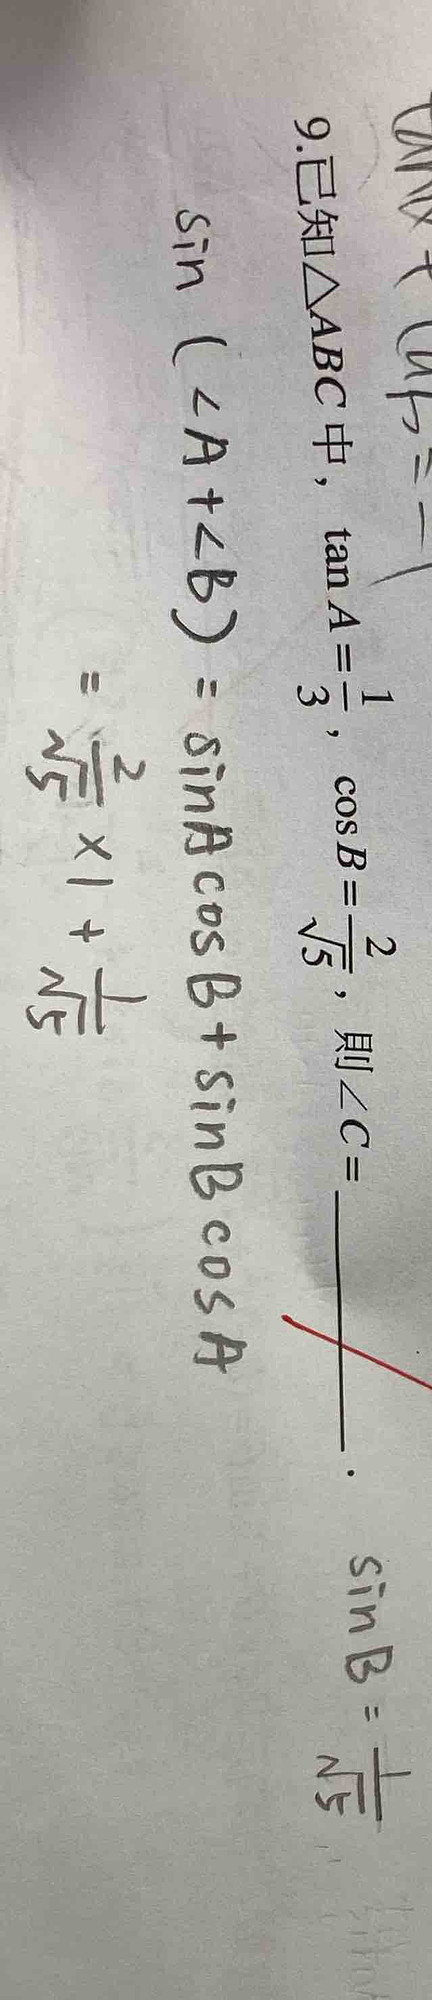 9.已知△ABC中，tan A=1/3，cos B=2/√5，則∠C=________．
sin B = 1/√5
sin (∠A+∠B) = sinA cosB + sinB cosA
= 2/√5 × 1 + 1/√5